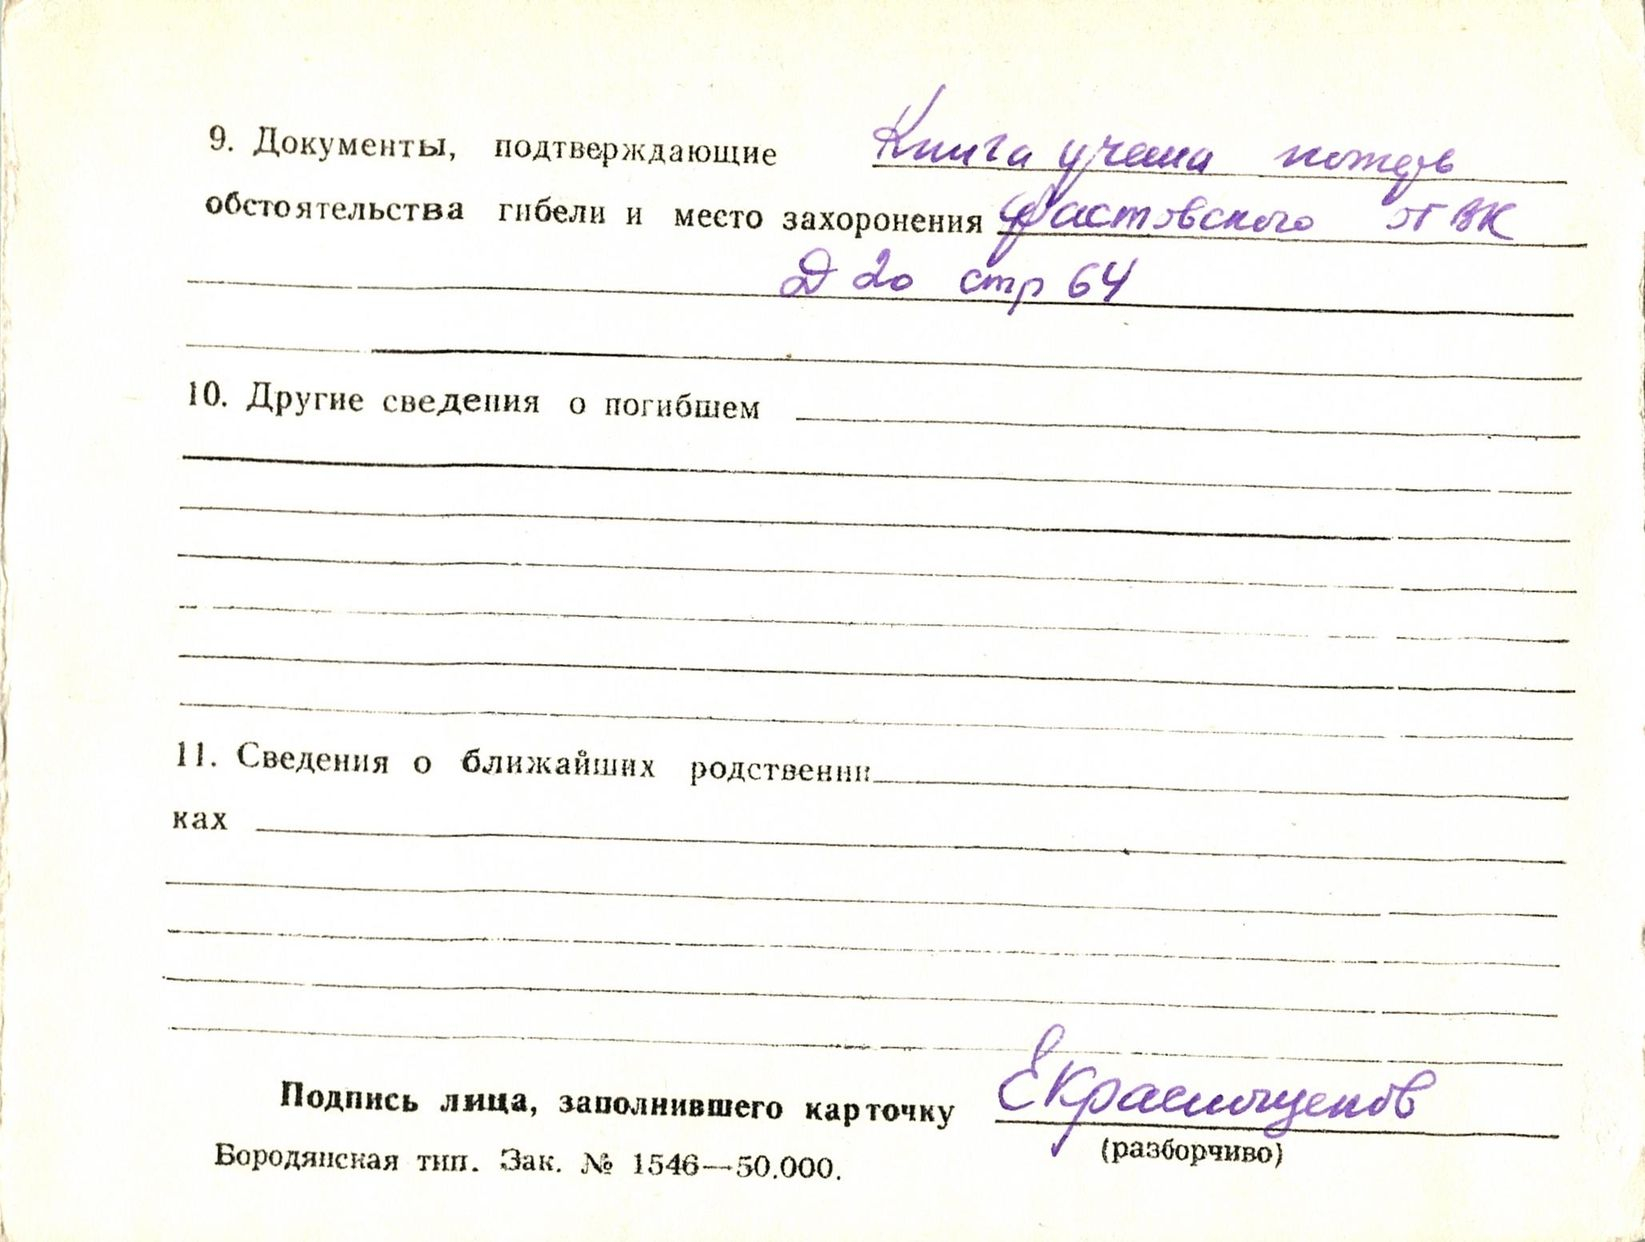 9. Документы, подтверждающие Книга учета потерь
обстоятельства гибели и место захоронения Фастовского ОГВК
Д 20 стр 64
10. Другие сведения о погибшем
11. Сведения о ближайших родственни
ках
Подпись лица, заполнившего карточку ЕКраснощеков
(разборчиво)
Бородянская тип. Зак. № 1546—50.000.